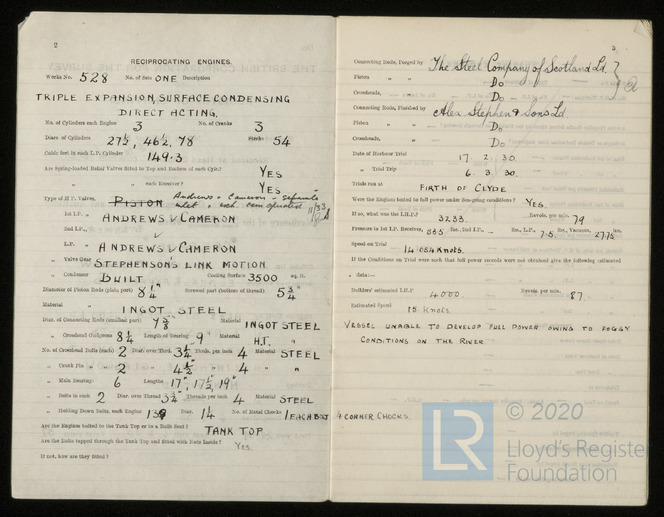 2
RECIPROCATING ENGINES.
Works No. 528 No. of Sets ONE Description
TRIPLE EXPANSION, SURFACE CONDENSING
DIRECT ACTING.
No. of Cylinders each Engine 3 No. of Cranks 3
Diars of Cylinders 27½, 46½, 78 Stroke 54
Cubic feet in each L.P. Cylinder 149.3
Are Spring-loaded Relief Valves fitted to Top and Bottom of each Cylr.? YES
" " each Receiver? YES
Type of H.P. Valves, PISTON Andrews & Cameron - separate
inlet & exh.
1st I.P. " ANDREWS & CAMERON
2nd I.P., "
L.P. " ANDREWS & CAMERON
" Valve Gear STEPHENSON'S LINK MOTION
" Condenser BUILT Cooling Surface 3500 sq. ft.
Diameter of Piston Rods (plain part) 8¼" Screwed part (bottom of thread) 5¾"
Material INGOT STEEL
Diar. of Connecting Rods (smallest part) Material INGOT STEEL
" Crosshead Gudgeons 8¼ Length of Bearing 9" Material H.T. "
No. of Crosshead Bolts (each) 2 Diar. over Thrd. 3¼" Thrds. per inch 4 Material STEEL
" Crank Pin " " 2 " 4½" " 4 " "
" Main Bearings 6 Lengths 17", 17½", 19"
" Bolts in each 2 Diar. over Thread 3¾" Threads per inch 4 Material STEEL
" Holding Down Bolts, each Engine Diar. 1¼ No. of Metal Chocks 1 EACH BOLT 4 CORNER CHOCKS.
Are the Engines bolted to the Tank Top or to a Built Seat? TANK TOP
Are the Bolts tapped through the Tank Top and fitted with Nuts Inside? Yes.
If not, how are they fitted?
3
Connecting Rods, Forged by The Steel Company of Scotland Ld.
Piston " " Do
Crossheads, " Do
Connecting Rods, Finished by Alex Stephen & Sons Ld
Piston " " Do
Crossheads, " Do
Date of Harbour Trial 17. 2. 30.
" Trial Trip 6. 3. 30.
Trials run at FIRTH OF CLYDE
Were the Engines tested to full power under Sea-going conditions? YES.
If so, what was the I.H.P.? 3233. Revols. per min. 79
Pressure in 1st I.P. Receiver, lbs., 2nd I.P., lbs., L.P., 7.5 lbs., Vacuum, ins.
Speed on Trial 14.054 KNOTS.
If the Conditions on Trial were such that full power records were not obtained give the following estimated
data:—
Builders' estimated I.H.P. 4000. Revols. per min. 87.
Estimated Speed 15 KNOTS
VESSEL UNABLE TO DEVELOP FULL POWER OWING TO FOGGY
CONDITIONS ON THE RIVER.
LR
© 2020
Lloyd's Register
Foundation